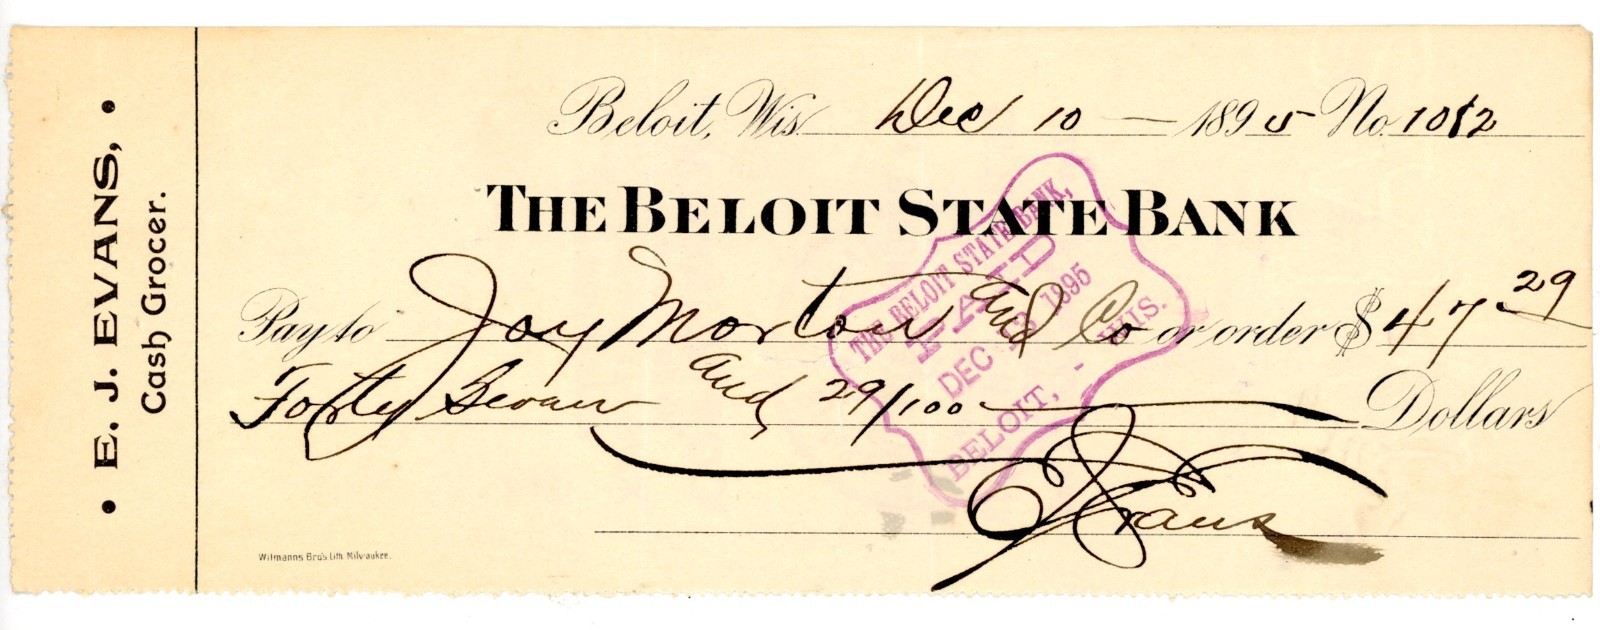 E. J. EVANS,
Cash Grocer.
Beloit, Wis. Dec 10 — 1895 No. 1012
THE BELOIT STATE BANK
Pay to Joy Morton and Co or order $47 29
Forty Seven and 29/100 Dollars
E J Evans
THE BELOIT STATE BANK,
PAID
DEC 1895
BELOIT, - WIS.
Wilmanns Bro's Lith. Milwaukee.